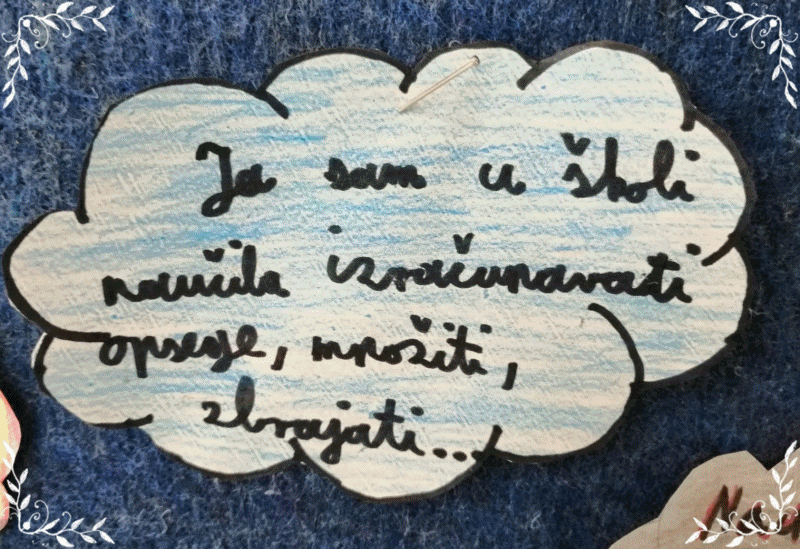 Ja sam u školi
naučila izračunavati
opsege, množiti,
zbrajati...